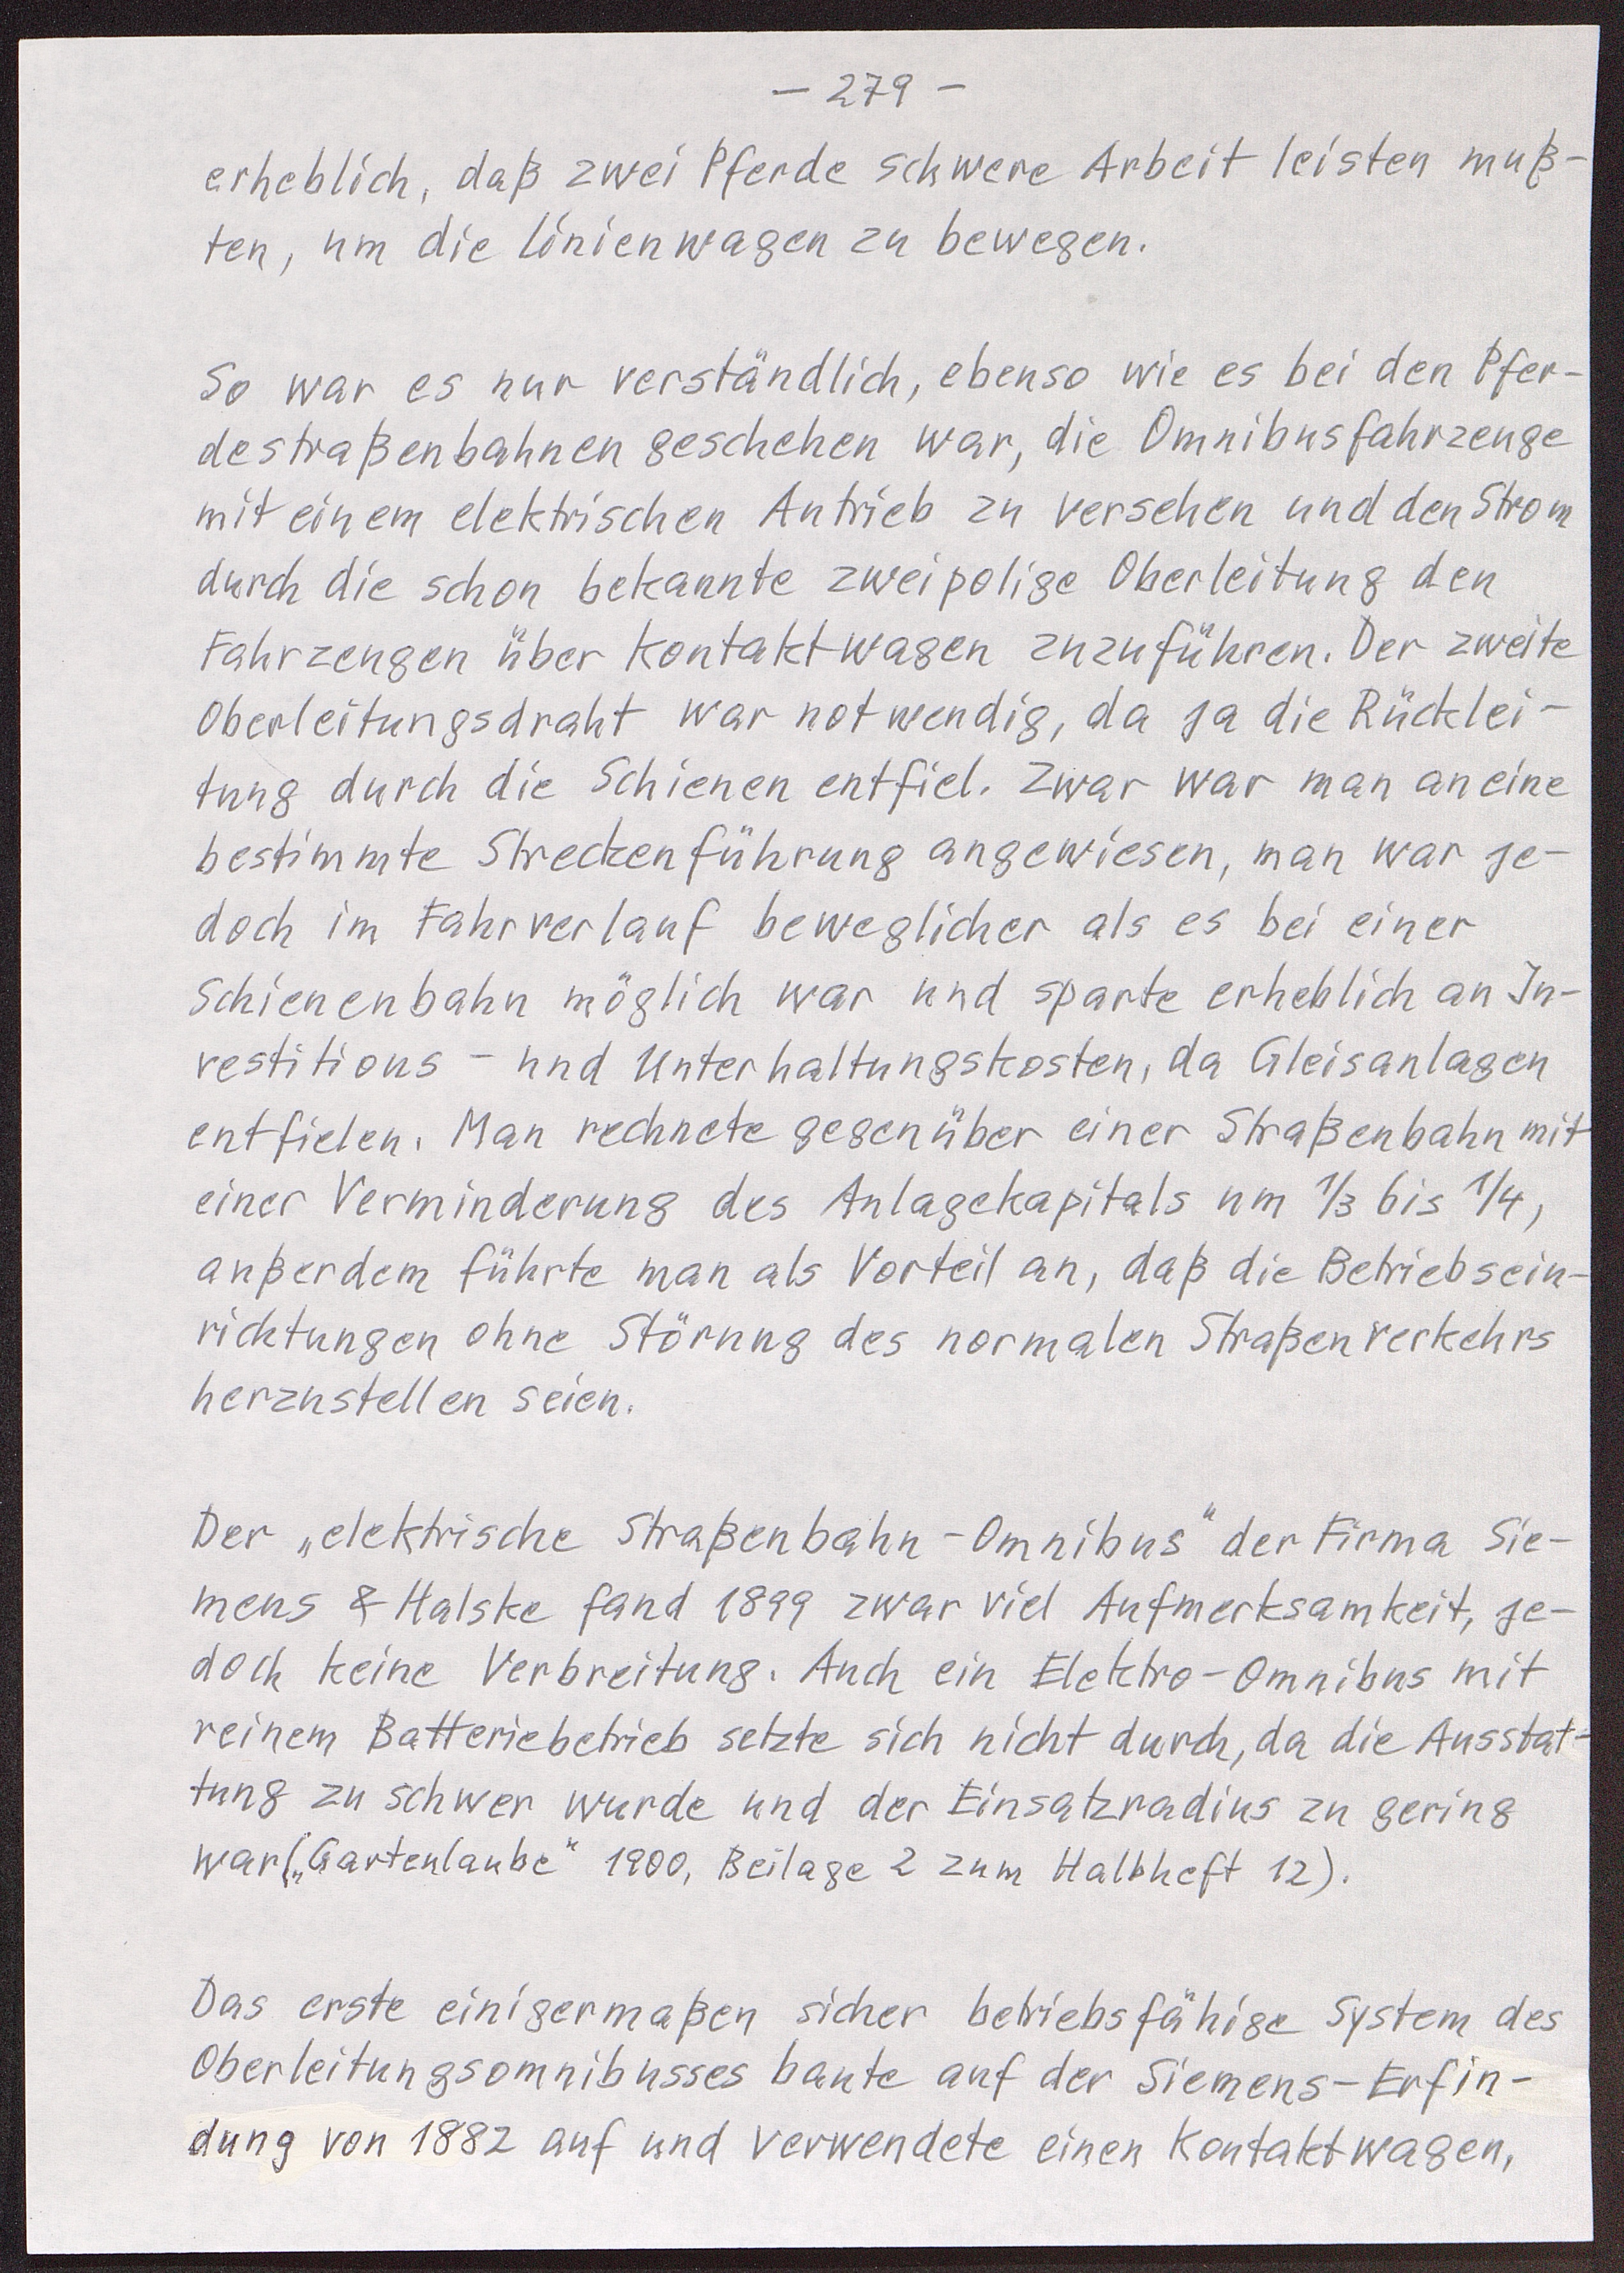 — 279 —
erheblich, daß zwei Pferde schwere Arbeit leisten muß-
ten, um die Linienwagen zu bewegen.
So war es nur verständlich, ebenso wie es bei den Pfer-
destraßenbahnen geschehen war, die Omnibusfahrzeuge
mit einem elektrischen Antrieb zu versehen und den Strom
durch die schon bekannte zweipolige Oberleitung den
Fahrzeugen über Kontaktwagen zuzuführen. Der zweite
Oberleitungsdraht war notwendig, da ja die Rücklei-
tung durch die Schienen entfiel. Zwar war man an eine
bestimmte Streckenführung angewiesen, man war je-
doch im Fahrverlauf beweglicher als es bei einer
Schienenbahn möglich war und sparte erheblich an In-
vestitions- und Unterhaltungskosten, da Gleisanlagen
entfielen. Man rechnete gegenüber einer Straßenbahn mit
einer Verminderung des Anlagekapitals um 1/3 bis 1/4,
außerdem führte man als Vorteil an, daß die Betriebsein-
richtungen ohne Störung des normalen Straßenverkehrs
herzustellen seien.
Der „elektrische Straßenbahn-Omnibus" der Firma Sie-
mens & Halske fand 1899 zwar viel Aufmerksamkeit, je-
doch keine Verbreitung. Auch ein Elektro-Omnibus mit
reinem Batteriebetrieb setzte sich nicht durch, da die Ausstat-
tung zu schwer wurde und der Einsatzradius zu gering
war („Gartenlaube" 1900, Beilage 2 zum Halbheft 12).
Das erste einigermaßen sicher betriebsfähige System des
Oberleitungsomnibusses baute auf der Siemens-Erfin-
dung von 1882 auf und verwendete einen Kontaktwagen,